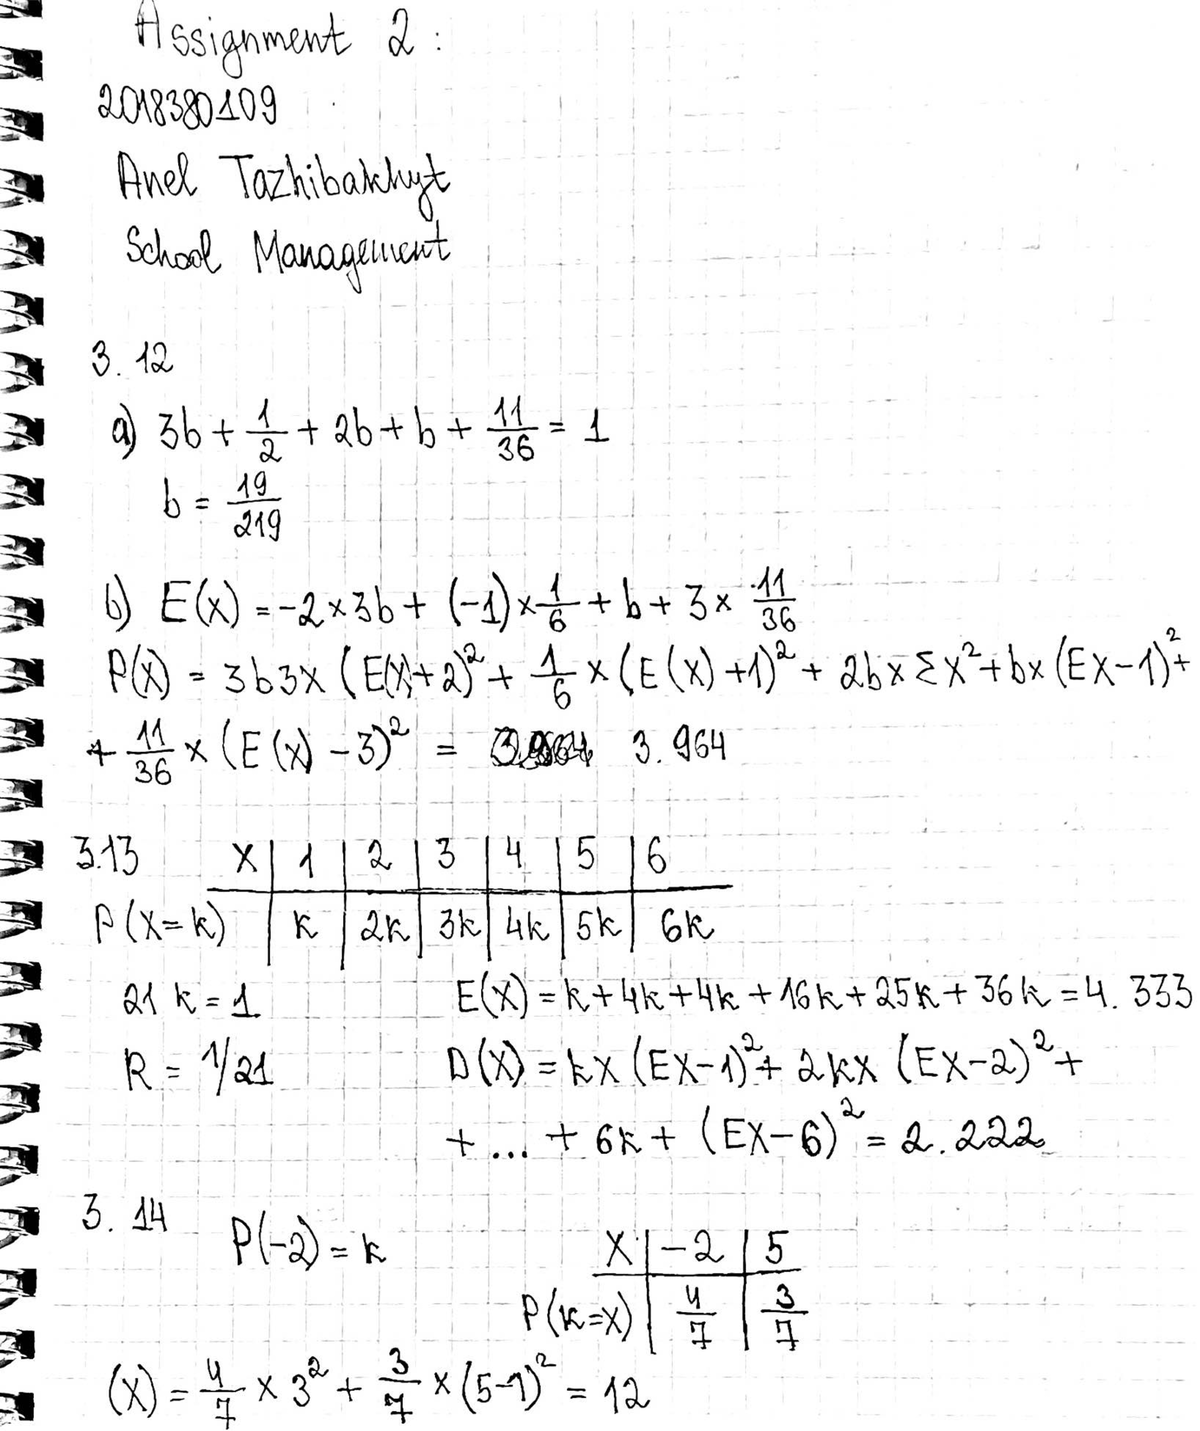 Assignment 2 :
2018380109
Anel Tazhibakhyt
School Management
3. 12
a) 3b + 1/2 + 2b + b + 11/36 = 1
b = 19/219
b) E(x) = -2 × 3b + (-1) × 1/6 + b + 3 × 11/36
P(x) = 3b3x (E(x)+2)² + 1/6 × (E(x)+1)² + 2b x Σx² + bx (Ex-1)² +
+ 11/36 × (E(x) - 3)² = 3.964
3.13 X | 1 | 2 | 3 | 4 | 5 | 6
P(x=k) | k | 2k | 3k | 4k | 5k | 6k
21 k = 1 E(x) = k + 4k + 4k + 16k + 25k + 36k = 4.333
R = 1/21 D(x) = kx (Ex-1)² + 2kx (Ex-2)² +
+ ... + 6k + (Ex-6)² = 2.222
3. 14 P(-2) = k X | -2 | 5
P(k=x) | 4/7 | 3/7
(x) = 4/7 × 3² + 3/7 × (5-1)² = 12